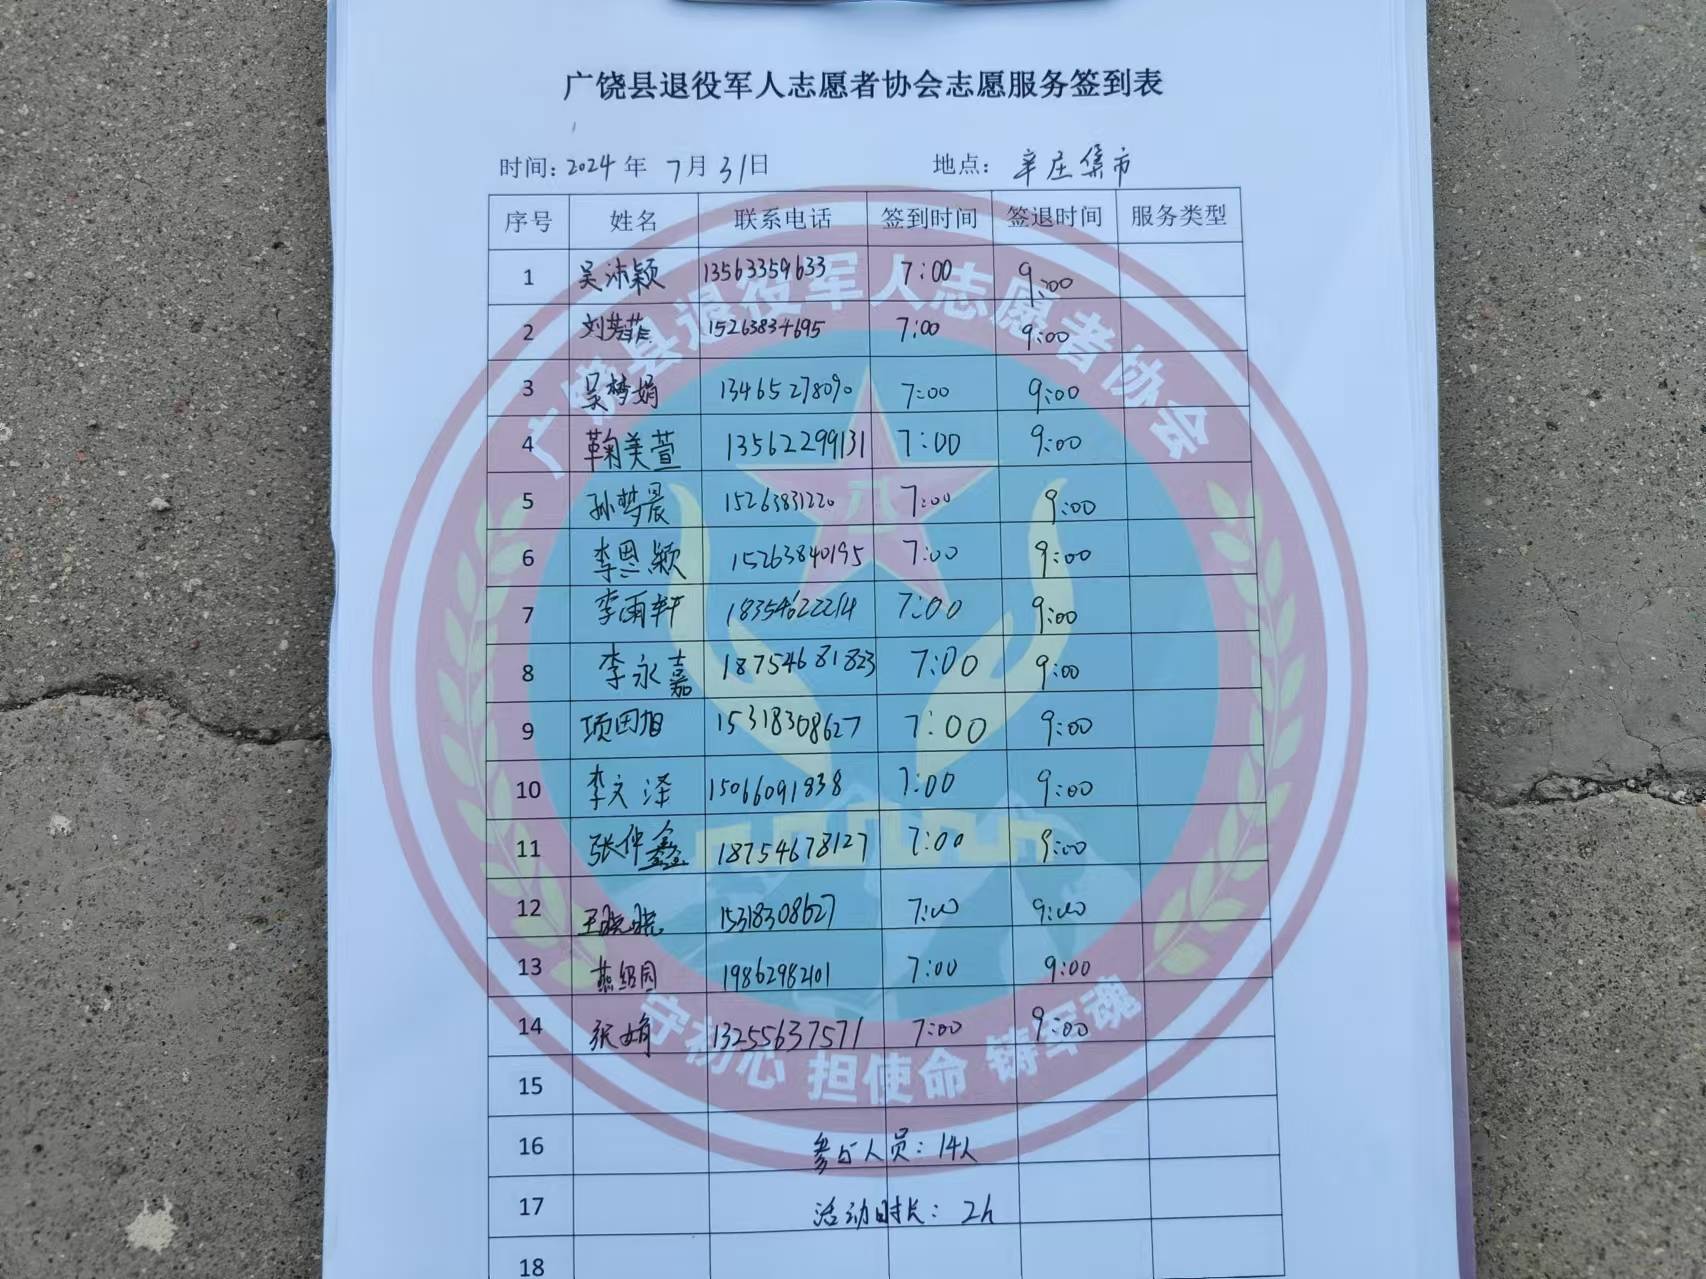 广饶县退役军人志愿者协会志愿服务签到表
时间: 2024 年 7 月 31 日 地点: 辛庄集市
序号 姓名 联系电话 签到时间 签退时间 服务类型
1 吴沛颖 13563359633 7:00 9:00
2 刘芳菲 15263834695 7:00 9:00
3 吴梦娟 13465278090 7:00 9:00
4 鞠美萱 13562299131 7:00 9:00
5 孙梦晨 15263831220 7:00 9:00
6 李思颖 15263840195 7:00 9:00
7 李雨轩 18354622214 7:00 9:00
8 李永嘉 18754681823 7:00 9:00
9 项田旭 15318308627 7:00 9:00
10 李文泽 15066091838 7:00 9:00
11 张仲鑫 18754678127 7:00 9:00
12 王晓晓 15318308627 7:00 9:00
13 燕绍园 19862982101 7:00 9:00
14 张娟 13255637571 7:00 9:00
15
16 参与人员: 14人
17 活动时长: 2h
18
广饶县退役军人志愿者协会
八一
守初心 担使命 铸军魂